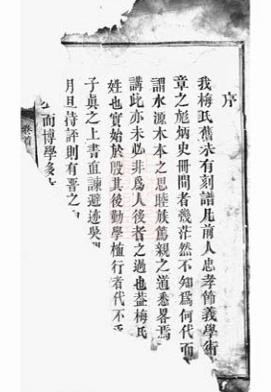 序
我梅氏舊未有刻譜凡前人忠孝節義學術
章之彪炳史冊間者幾茫然不知爲何代而
謂水源木本之思睦族篤親之道悉畧焉
講此亦未必非爲人後者之過也蓋梅氏
姓也實始於殷其後勤學植行者代不
子眞之上書直諫避迹吳
月旦待評則有晉之
而博學多
卷首